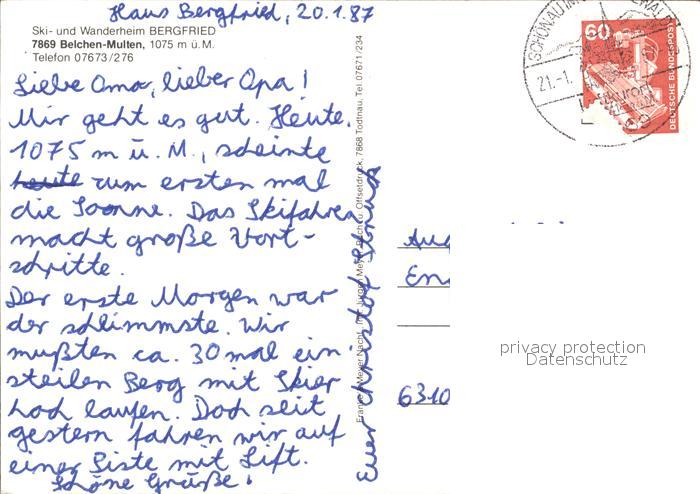 Haus Bergfried, 20.1.87
Ski- und Wanderheim BERGFRIED
7869 Belchen-Multen, 1075 m ü.M.
Telefon 07673/276
Liebe Oma, lieber Opa!
Mir geht es gut. Heute.
1075 m ü. M., scheinte
heute zum ersten mal
die Sonne. Das Skifahren
macht große Vort-
schritte.
Der erste Morgen war
der schlimmste. Wir
mußten ca. 30 mal ein
steilen Berg mit Skier
hoch laufen. Doch seit
gestern fahren wir auf
einer Piste mit Lift.
Schöne Grüße!
Euer Christof
Offsetdruck, 7868 Todtnau, Tel. 07671/234
60
DEUTSCHE BUNDESPOST
SCHÖNAU IM
21.-1.
6310
privacy protection
Datenschutz